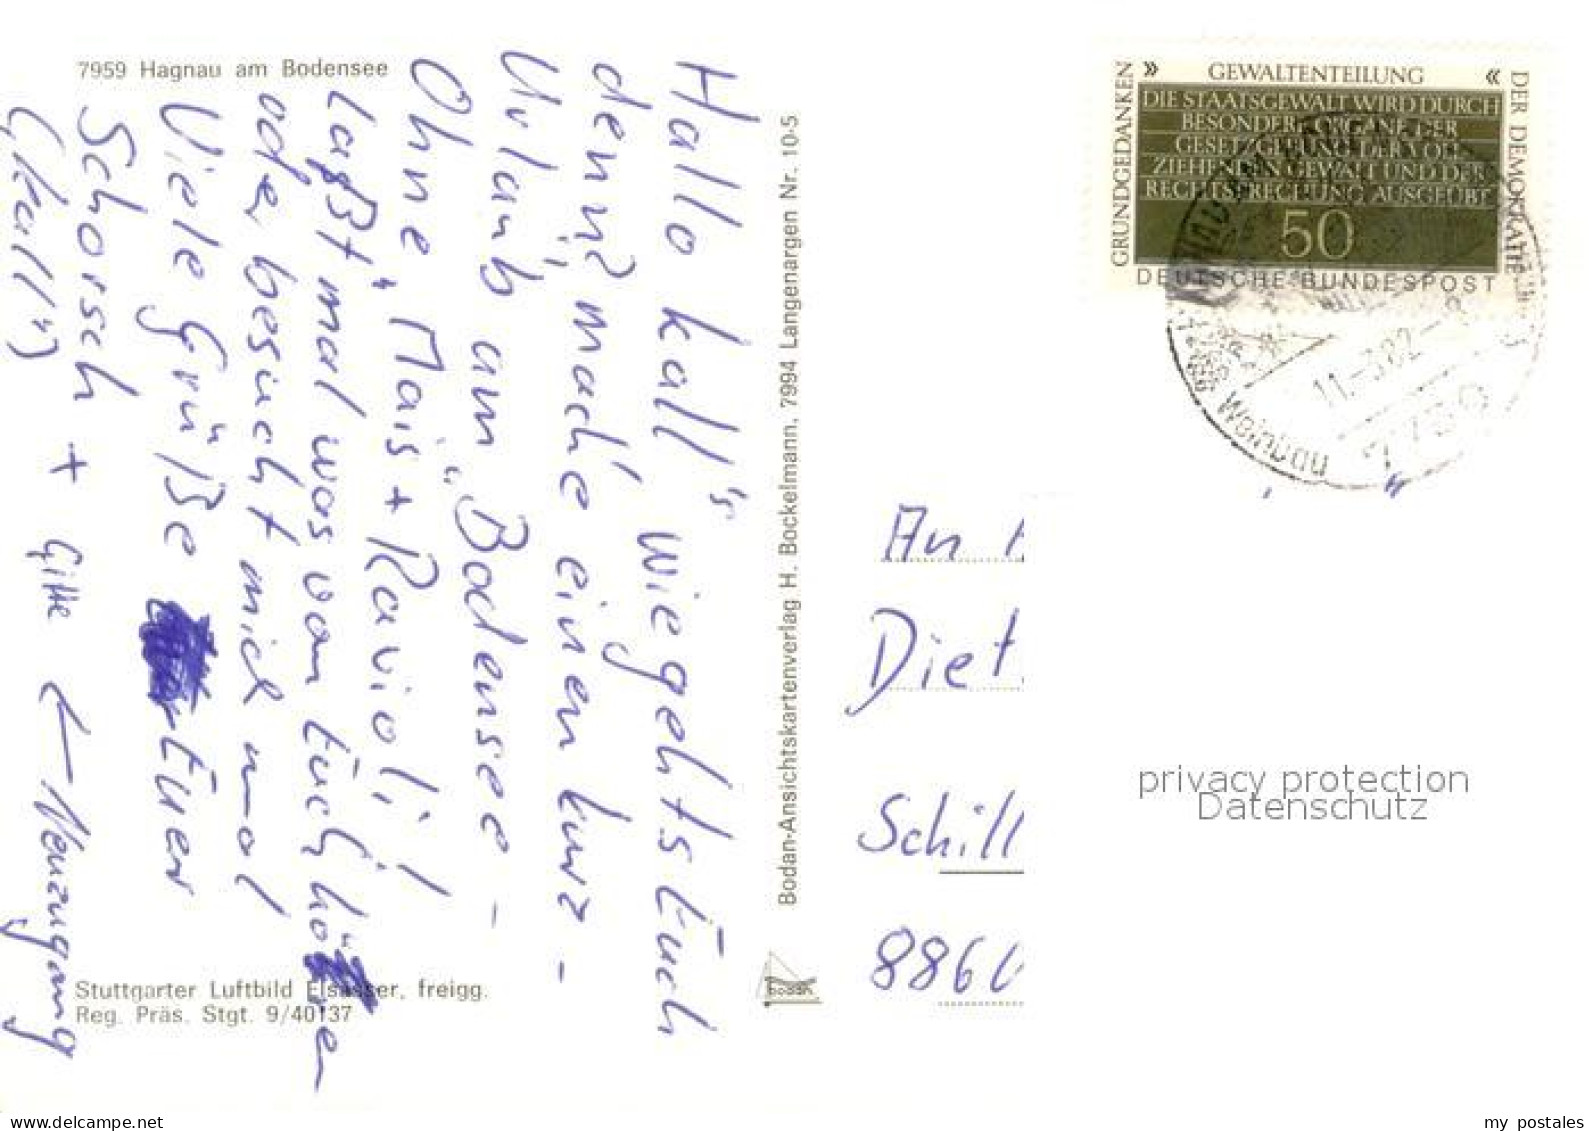 7959 Hagnau am Bodensee
Hallo kall's wie gehts Euch
denn? mache einen kurz-
Urlaub am "Bodensee-
Ohne "Mais + Ravioli!
Laßt mal was von Euch hören
oder besucht mich mal
Viele Grüße Euer
Schorsch + Gitte ← Neuzugang
Stuttgarter Luftbild Elsässer, freigg.
Reg. Präs. Stgt. 9/40137
Bodan-Ansichtskartenverlag H. Bockelmann, 7994 Langenargen Nr. 10-5
bodan
» GEWALTENTEILUNG «
GRUNDGEDANKEN
DER DEMOKRATIE
DIE STAATSGEWALT WIRD DURCH
BESONDERE ORGANE DER
GESETZGEBUNG, DER VOLL-
ZIEHENDEN GEWALT UND DER
RECHTSPRECHUNG AUSGEÜBT
50
DEUTSCHE BUNDESPOST
11.-3.82
Weinbau
An
Diet
Schill
886
privacy protection
Datenschutz
www.delcampe.net
my postales